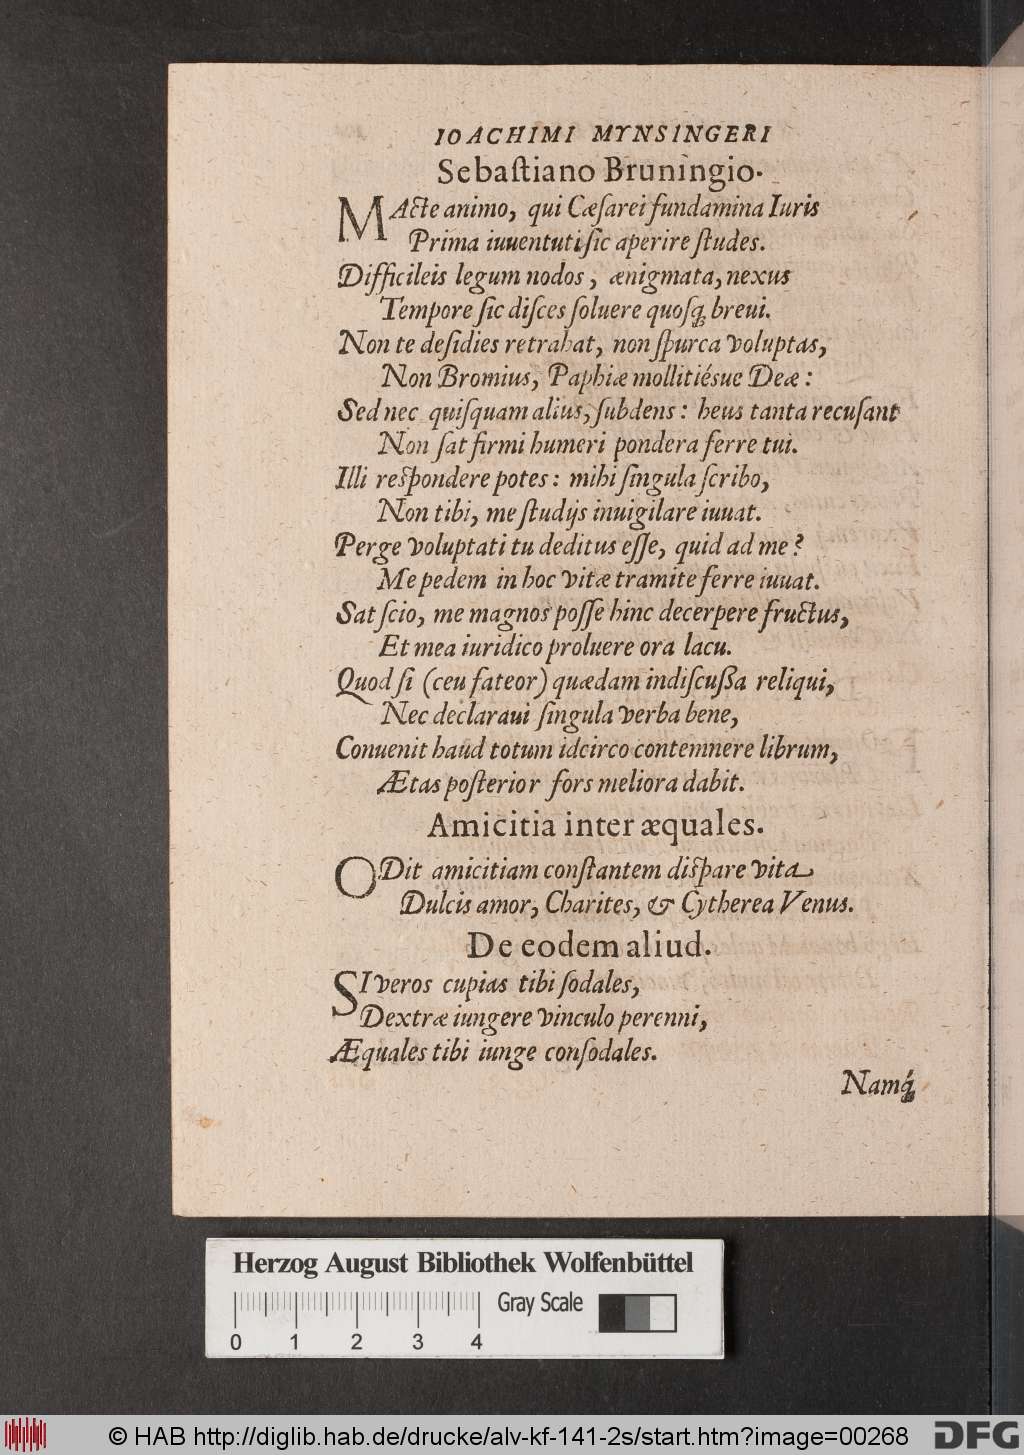 IOACHIMI MYNSINGERI
Sebaſtiano Bruningio.
MActe animo, qui Cæſarei fundamina Iuris
Prima iuuentuti ſic aperire ſtudes.
Difficileis legum nodos, ænigmata, nexus
Tempore ſic diſces ſoluere quoſq́; breui.
Non te deſidies retrahat, non ſpurca voluptas,
Non Bromius, Paphiæ mollitiésue Deæ:
Sed nec quiſquam alius, ſubdens: heus tanta recuſant
Non ſat firmi humeri pondera ferre tui.
Illi reſpondere potes: mihi ſingula ſcribo,
Non tibi, me ſtudijs inuigilare iuuat.
Perge voluptati tu deditus eſſe, quid ad me?
Me pedem in hoc vitæ tramite ferre iuuat.
Sat ſcio, me magnos poſſe hinc decerpere fructus,
Et mea iuridico proluere ora lacu.
Quod ſi (ceu fateor) quædam indiſcußa reliqui,
Nec declaraui ſingula verba bene,
Conuenit haud totum idcirco contemnere librum,
Ætas poſterior fors meliora dabit.
Amicitia inter æquales.
ODit amicitiam conſtantem diſpare vita
Dulcis amor, Charites, & Cytherea Venus.
De eodem aliud.
SI veros cupias tibi ſodales,
Dextræ iungere vinculo perenni,
Æquales tibi iunge conſodales.
Namq́;
Herzog August Bibliothek Wolfenbüttel
Gray Scale
0 1 2 3 4
© HAB http://diglib.hab.de/drucke/alv-kf-141-2s/start.htm?image=00268
DFG